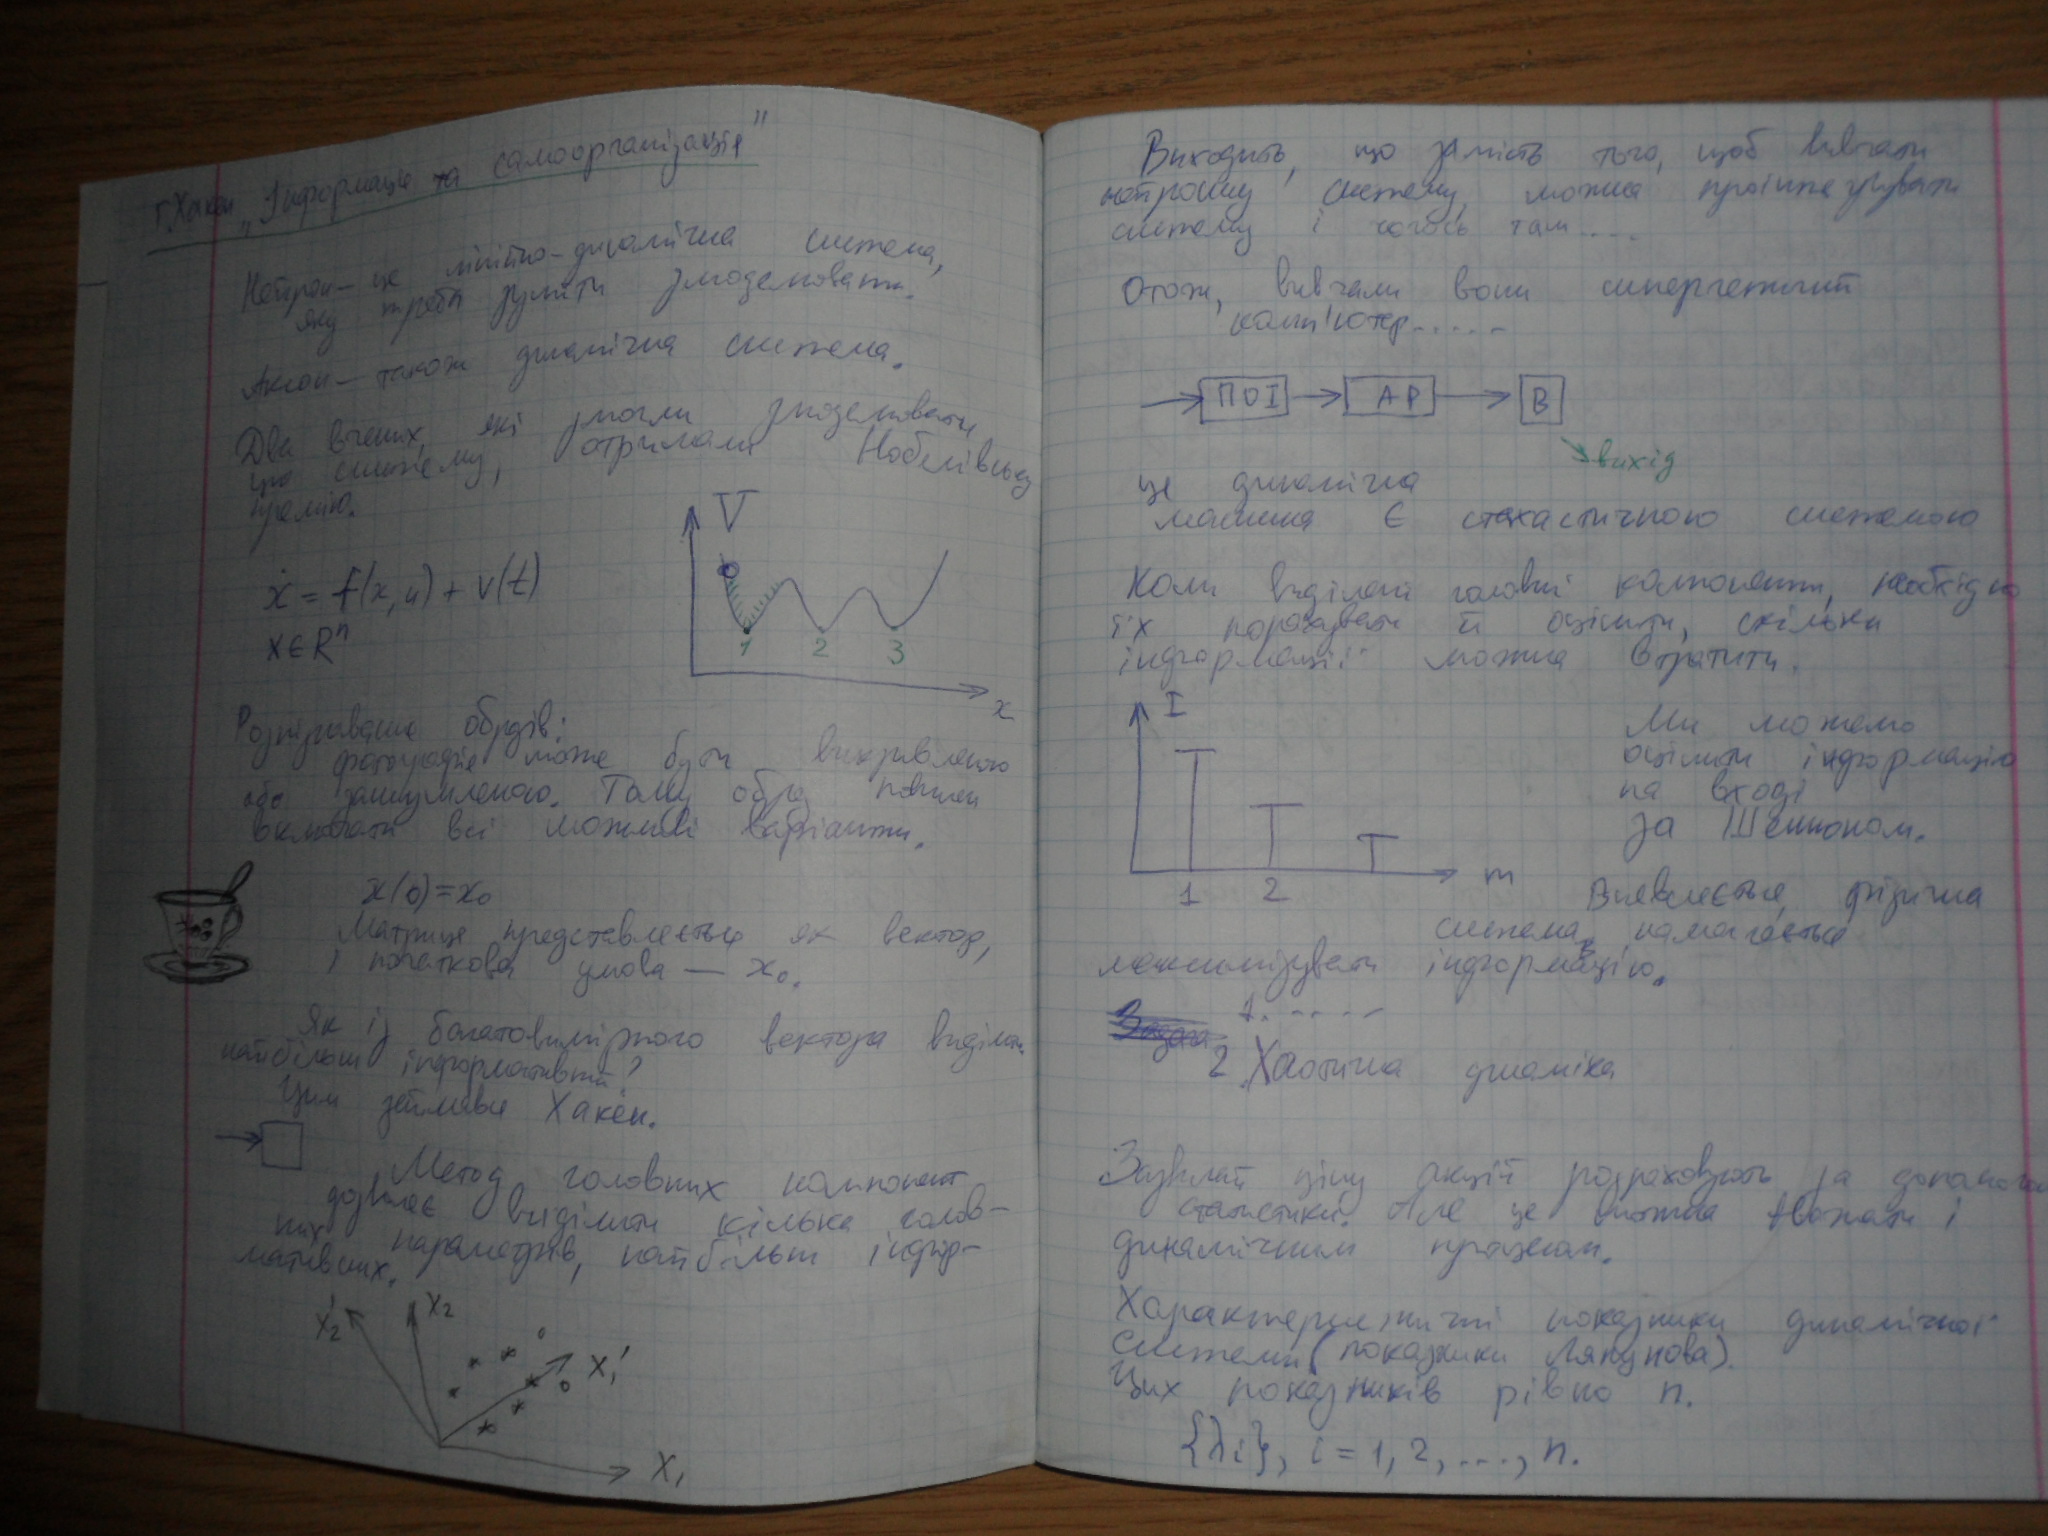 Г. Хакен „Інформація та самоорганізація"
Нейрон – це лінійно-динамічна система,
яку треба зуміти змоделювати.
Аксон – також динамічна система.
Два вчених, які змогли змоделювати
цю систему, отримали Нобелівську
премію.
ẋ = f(x, u) + v(t)
x ∈ Rⁿ
V
1 2 3
x
Розпізнавання образів:
фотографія може бути викривленою
або зашумленою. Тому образ повинен
включати всі можливі варіанти.
x(0) = x₀
Матриця представляється як вектор,
і початкова умова — x₀.
Як із багатовимірного вектора виділити
найбільш інформативний?
Цим займався Хакен.
Метод головних компонент
дозволяє виділити кілька голов-
них параметрів, найбільш інфор-
мативних.
X₂' X₂
X₁'
X₁
Виходить, що замість того, щоб вивчати
нейронну систему, можна проінтегрувати
систему і чогось там....
Отож, вивчали вони синергетичний
комп'ютер.....
ПОІ АР В
вихід
це динамічна
машина є стохастичною системою
Коли виділені головні компоненти, необхідно
їх порахувати й оцінити, скільки
інформації можна втратити.
I
1 2
m
Ми можемо
оцінити інформацію
на вході
за Шенноном.
Виявляється, фізична
система намагається
максимізувати інформацію.
1. .....
2. Хаотична динаміка
Зазвичай ціну акцій розраховують за допомогою
статистики. Але це можна вважати і
динамічним процесом.
Характеристичні показники динамічної
системи (показники Ляпунова).
Цих показників рівно n.
{λi}, i = 1, 2, ..., n.